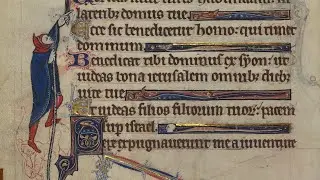 lateribus domus tue
Ecce sic benedicetur homo: qui timet
dominum
Benedicat tibi dominus ex syon: ut
uideas bona ierusalem omnibus dieb
uite tue
Et uideas filios filiorum tuorum: pacem
sup israel
Sepe expugnauerunt me a iuuentute